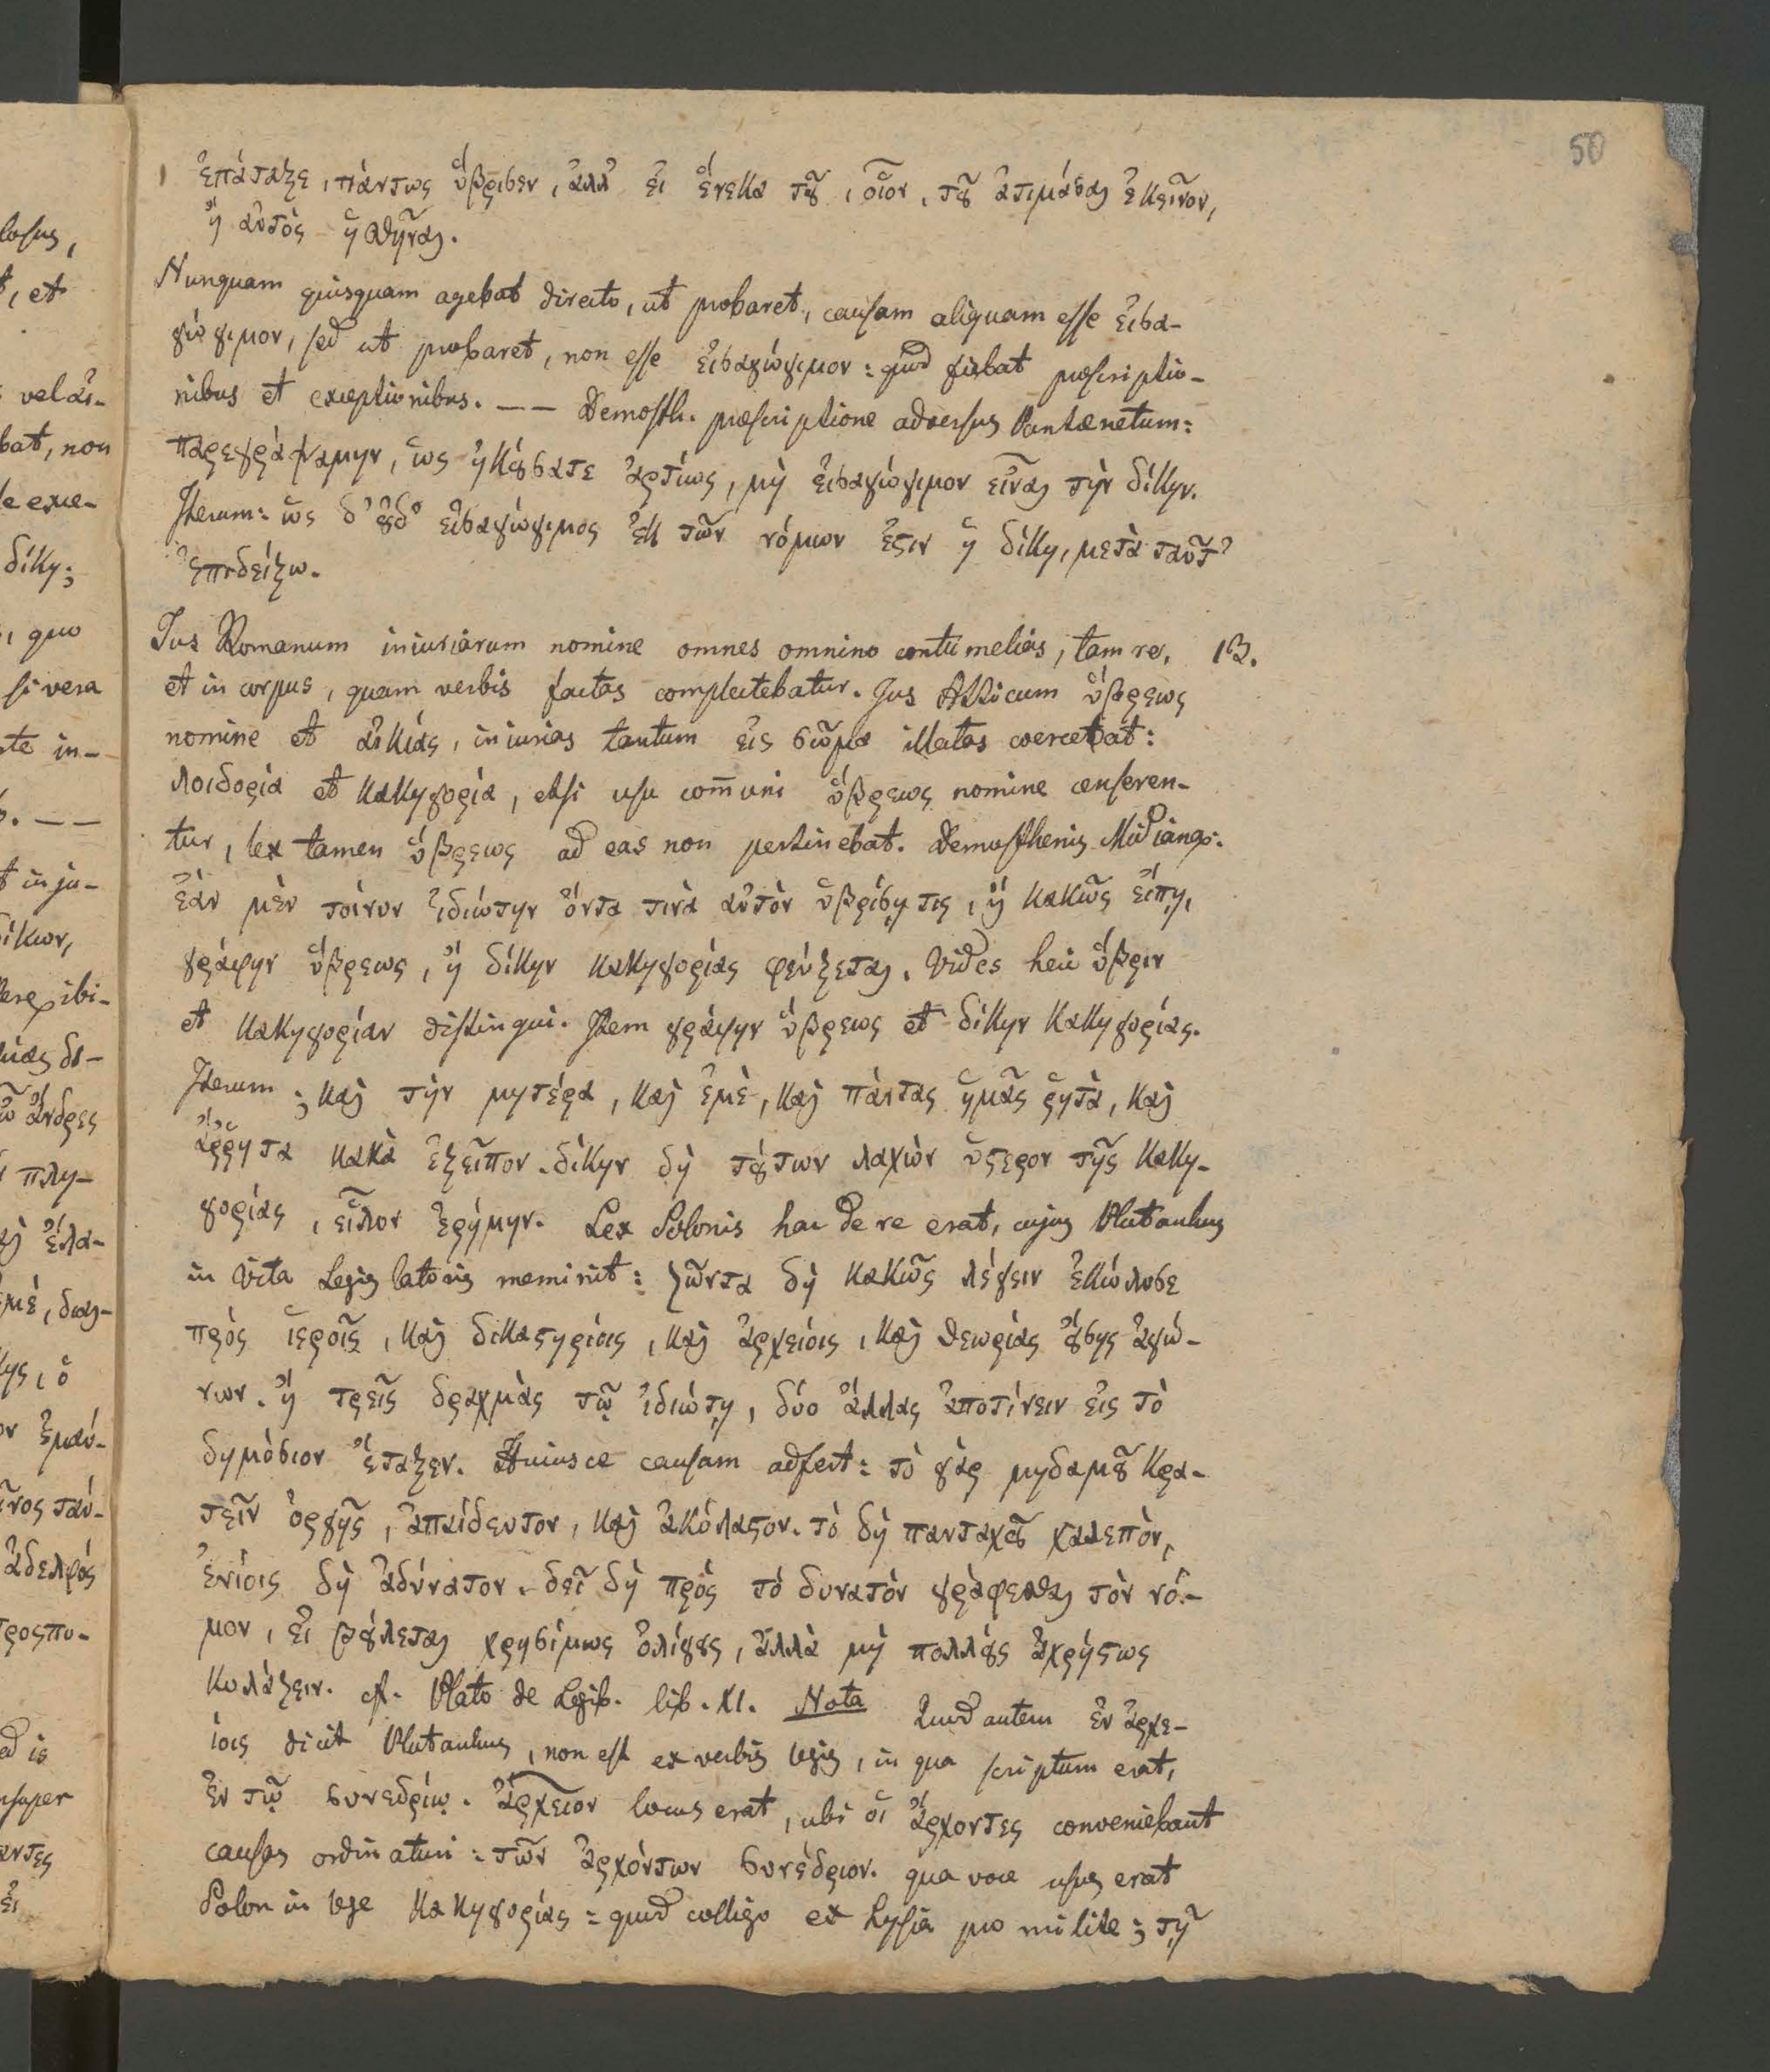 50
ἐπάταξε, πάντως ὕβρισεν, ἀλλ' εἰ ἕνεκα τȣ͂, οἷον, τȣ͂ ἀτιμάσαι ἐκεῖνον,
ἢ αὐτὸς ἡσθῆναι.
Nunquam quisquam agebat directo, ut probaret, causam aliquam esse εἰσα-
γώγιμον, sed ut probaret, non esse εἰσαγώγιμον: quod fiebat praescriptio-
nibus et exceptionibus. — — Demosth. praescriptione adversus Pantaenetum:
παρεγράψαμην, ὡς ἠκȣ́σατε ἀρτίως, μὴ εἰσαγώγιμον εἶναι τὴν δίκην.
Iterum: ὡς δ' ȣ̓δ' εἰσαγώγιμος ἐκ τῶν νόμων ἐστιν ἡ δίκη, μετὰ ταῦτ'
ἐπιδείξω.
Jus Romanum iniuriarum nomine omnes omnino contumelias, tam re, 13.
et in corpus, quam verbis factas complectebatur. Jus Atticum ὕβρεως
nomine et αἰκίας, iniurias tantum εἰς σῶμα illatas coercebat:
λοιδορία et κακηγορία, etsi usu com̄uni ὕβρεως nomine censeren-
tur, lex tamen ὕβρεως ad eas non pertinebat. Demosthenis Midiana:
ἐὰν μὲν τοίνυν ἰδιώτην ὄντα τινὰ αὐτὸν ὑβρίσῃ τις, ἢ κακῶς εἴπῃ,
γράφην ὕβρεως, ἢ δίκην κακηγορίας φεύξεται. Vides heic ὕβριν
et κακηγορίαν distingui. Item γράφην ὕβρεως et δίκην κακηγορίας.
Iterum; καὶ τὴν μητέρα, καὶ ἐμὲ, καὶ πάντας ἡμᾶς ῥητὰ, καὶ
ἄῤῥητα κακὰ ἐξεῖπον. δίκην δὴ τȣ́των λαχὼν ὕστερον τῆς κακη-
γορίας, εἷλον ἐρήμην. Lex Solonis hac de re erat, cujus Plutarchus
in Vita Legislatoris meminit: ζῶντα δὴ κακῶς λέγειν ἐκώλυσε
πρὸς ἱεροῖς, καὶ δικαστηρίοις, καὶ ἀρχείοις, καὶ θεωρίας ȣ̓́σης ἀγώ-
νων. ἢ τρεῖς δραχμὰς τῷ ἰδιώτῃ, δύο ἄλλας ἀποτίνειν εἰς τὸ
δημόσιον ἔταξεν. Huiusce causam adfert: τὸ γὰρ μηδαμȣ͂ κρα-
τεῖν ὀργῆς, ἀπαίδευτον, καὶ ἀκόλαστον. τὸ δὴ πανταχȣ͂ χαλεπὸν,
ἐνίοις δὴ ἀδύνατον. δεῖ δὴ πρὸς τὸ δυνατὸν γράφεσθαι τὸν νό-
μον, εἰ βȣ́λεται χρησίμως ὀλίγȣς, ἀλλὰ μὴ πολλȣ́ς ἀχρήστως
κολάζειν. cf. Plato de Legib. lib. XI. Nota Quod autem ἐν ἀρχε-
ίοις dicit Plutarchus, non est ex verbis legis, in qua scriptum erat,
ἐν τῷ συνεδρίῳ. ἀρχεῖον locus erat, ubi οἱ ἄρχοντες conveniebant
causas ordinaturi: τῶν ἀρχόντων συνέδριον. qua voce usus erat
Solon in lege κακηγορίας: quod colligo ex Lysia pro milite; τῇ